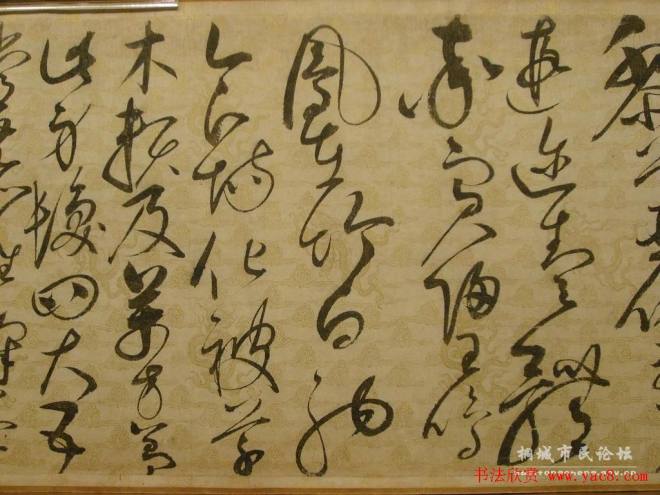 黎首臣伏
遐邇壹體
率賓歸王鳴
鳳在樹白駒
食場化被草
木賴及萬方蓋
此身髮四大五
桐城市民论坛
书法欣赏 www.yac8.com